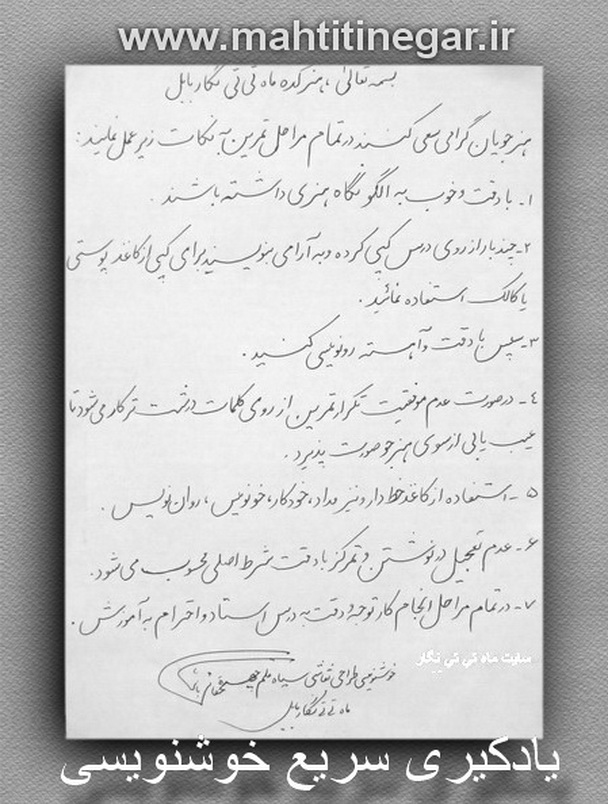 www.mahtitinegar.ir
بسمه تعالی، هنرکده ماه تی تی نگار بابل
هنرجویان گرامی سعی کنند در تمام مراحل تمرین به نکات زیر عمل نمایند:
۱- با دقت و خوب به الگو نگاه هنری داشته باشند.
۲- چند بار از روی درس کپی کرده و به آرامی بنویسید برای کپی از کاغذ پوستی
یا کالک استفاده نمائید.
۳- سپس با دقت و آهسته رونویسی کنید.
۴- در صورت عدم موفقیت تکرار تمرین از روی کلمات درشت تر کار می شود تا
عیب یابی از سوی هنرجو صورت پذیرد.
۵- استفاده از کاغذ خط دار و نیز مداد، خودکار، خودنویس، روان نویس.
۶- عدم تعجیل در نوشتن و تمرکز با دقت شرط اصلی محسوب می شود.
۷- در تمام مراحل انجام کار توجه و دقت به درس استاد و احترام به آموزش.
سایت ماه تی تی نگار
خوشنویسی طراحی نقاشی سیاه قلم چهره
ماه تی تی نگار بابل
یادگیری سریع خوشنویسی